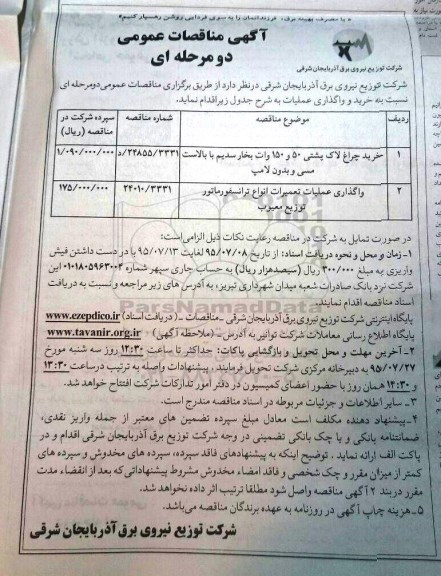 «با مصرف بهینه برق، فرزندانمان را به سوی فردایی روشن رهسپار کنیم»
آگهی مناقصات عمومی
دو مرحله ای
شرکت توزیع نیروی برق آذربایجان شرقی
شرکت توزیع نیروی برق آذربایجان شرقی درنظر دارد از طریق برگزاری مناقصات عمومی‌دومرحله ای
نسبت به خرید و واگذاری عملیات به شرح جدول زیراقدام نماید.
ردیف موضوع مناقصه شماره مناقصه سپرده شرکت در مناقصه (ریال)
۱ خرید چراغ لاک پشتی ۵۰ و ۱۵۰ وات بخارسدیم با بالاست مسی و بدون لامپ ۲۴۸۵۵/۳۳۳۱/د ۱/۰۹۰/۰۰۰/۰۰۰
۲ واگذاری عملیات تعمیرات انواع ترانسفورماتور توزیع معیوب ۲۴۰۱۰/۳۳۳۱ ۱۷۵/۰۰۰/۰۰۰
در صورت تمایل به شرکت در مناقصه رعایت نکات ذیل الزامی‌است:
۱-زمان و محل و نحوه دریافت اسناد: از تاریخ ۹۵/۰۷/۰۸ لغایت ۹۵/۰۷/۱۳ با در دست داشتن فیش
واریزی به مبلغ ۳۰۰/۰۰۰ ریال (سیصدهزار ریال) به حساب جاری سپهر شماره ۰۱۰۱۸۰۵۹۶۳۰۰۴ این
شرکت نزد بانک صادرات شعبه میدان شهرداری تبریز، به آدرس های زیر مراجعه و نسبت به دریافت
اسناد مناقصه اقدام نمایند.
پایگاه‌اینترنتی شرکت توزیع نیروی برق آذربایجان شرقی -مناقصات -( دریافت اسناد) www.ezepdico.ir
پایگاه اطلاع رسانی معاملات شرکت توانیر به آدرس -(ملاحظه آگهی) www.tavanir.org.ir
۲-آخرین مهلت و محل تحویل و بازگشایی پاکات: حداکثر تا ساعت ۱۲:۳۰ روز سه شنبه مورخ
۹۵/۰۷/۲۷ به دبیرخانه مرکزی شرکت تحویل فرمایند. پیشنهادات واصله به ترتیب درساعت ۱۳:۳۰
و ۱۴:۳۰ همان روز با حضور اعضای کمیسیون در دفتر امور تدارکات شرکت افتتاح خواهد شد.
۳- سایر اطلاعات و جزئیات مربوطه در اسناد مناقصه مندرج است.
۴-پیشنهاد دهنده مکلف است معادل مبلغ سپرده تضمین های معتبر از جمله واریز نقدی،
ضمانتنامه بانکی و یا چک بانکی تضمینی در وجه شرکت توزیع برق آذربایجان شرقی اقدام و در
پاکت الف ارائه نماید . توضیح اینکه به پیشنهادهای فاقد سپرده، سپرده های مخدوش و سپرده های
کمتر از میزان مقرر و چک شخصی و فاقد امضاء مخدوش مشروط پیشنهاداتی که بعد از انقضاء مدت
مقرر دربند ۲ آگهی مناقصه واصل شود مطلقا ترتیب اثر داده نخواهد شد.
۵-هزینه چاپ آگهی در روزنامه به عهده برندگان مناقصه می‌باشد.
شرکت توزیع نیروی برق آذربایجان شرقی
ParsNamadData